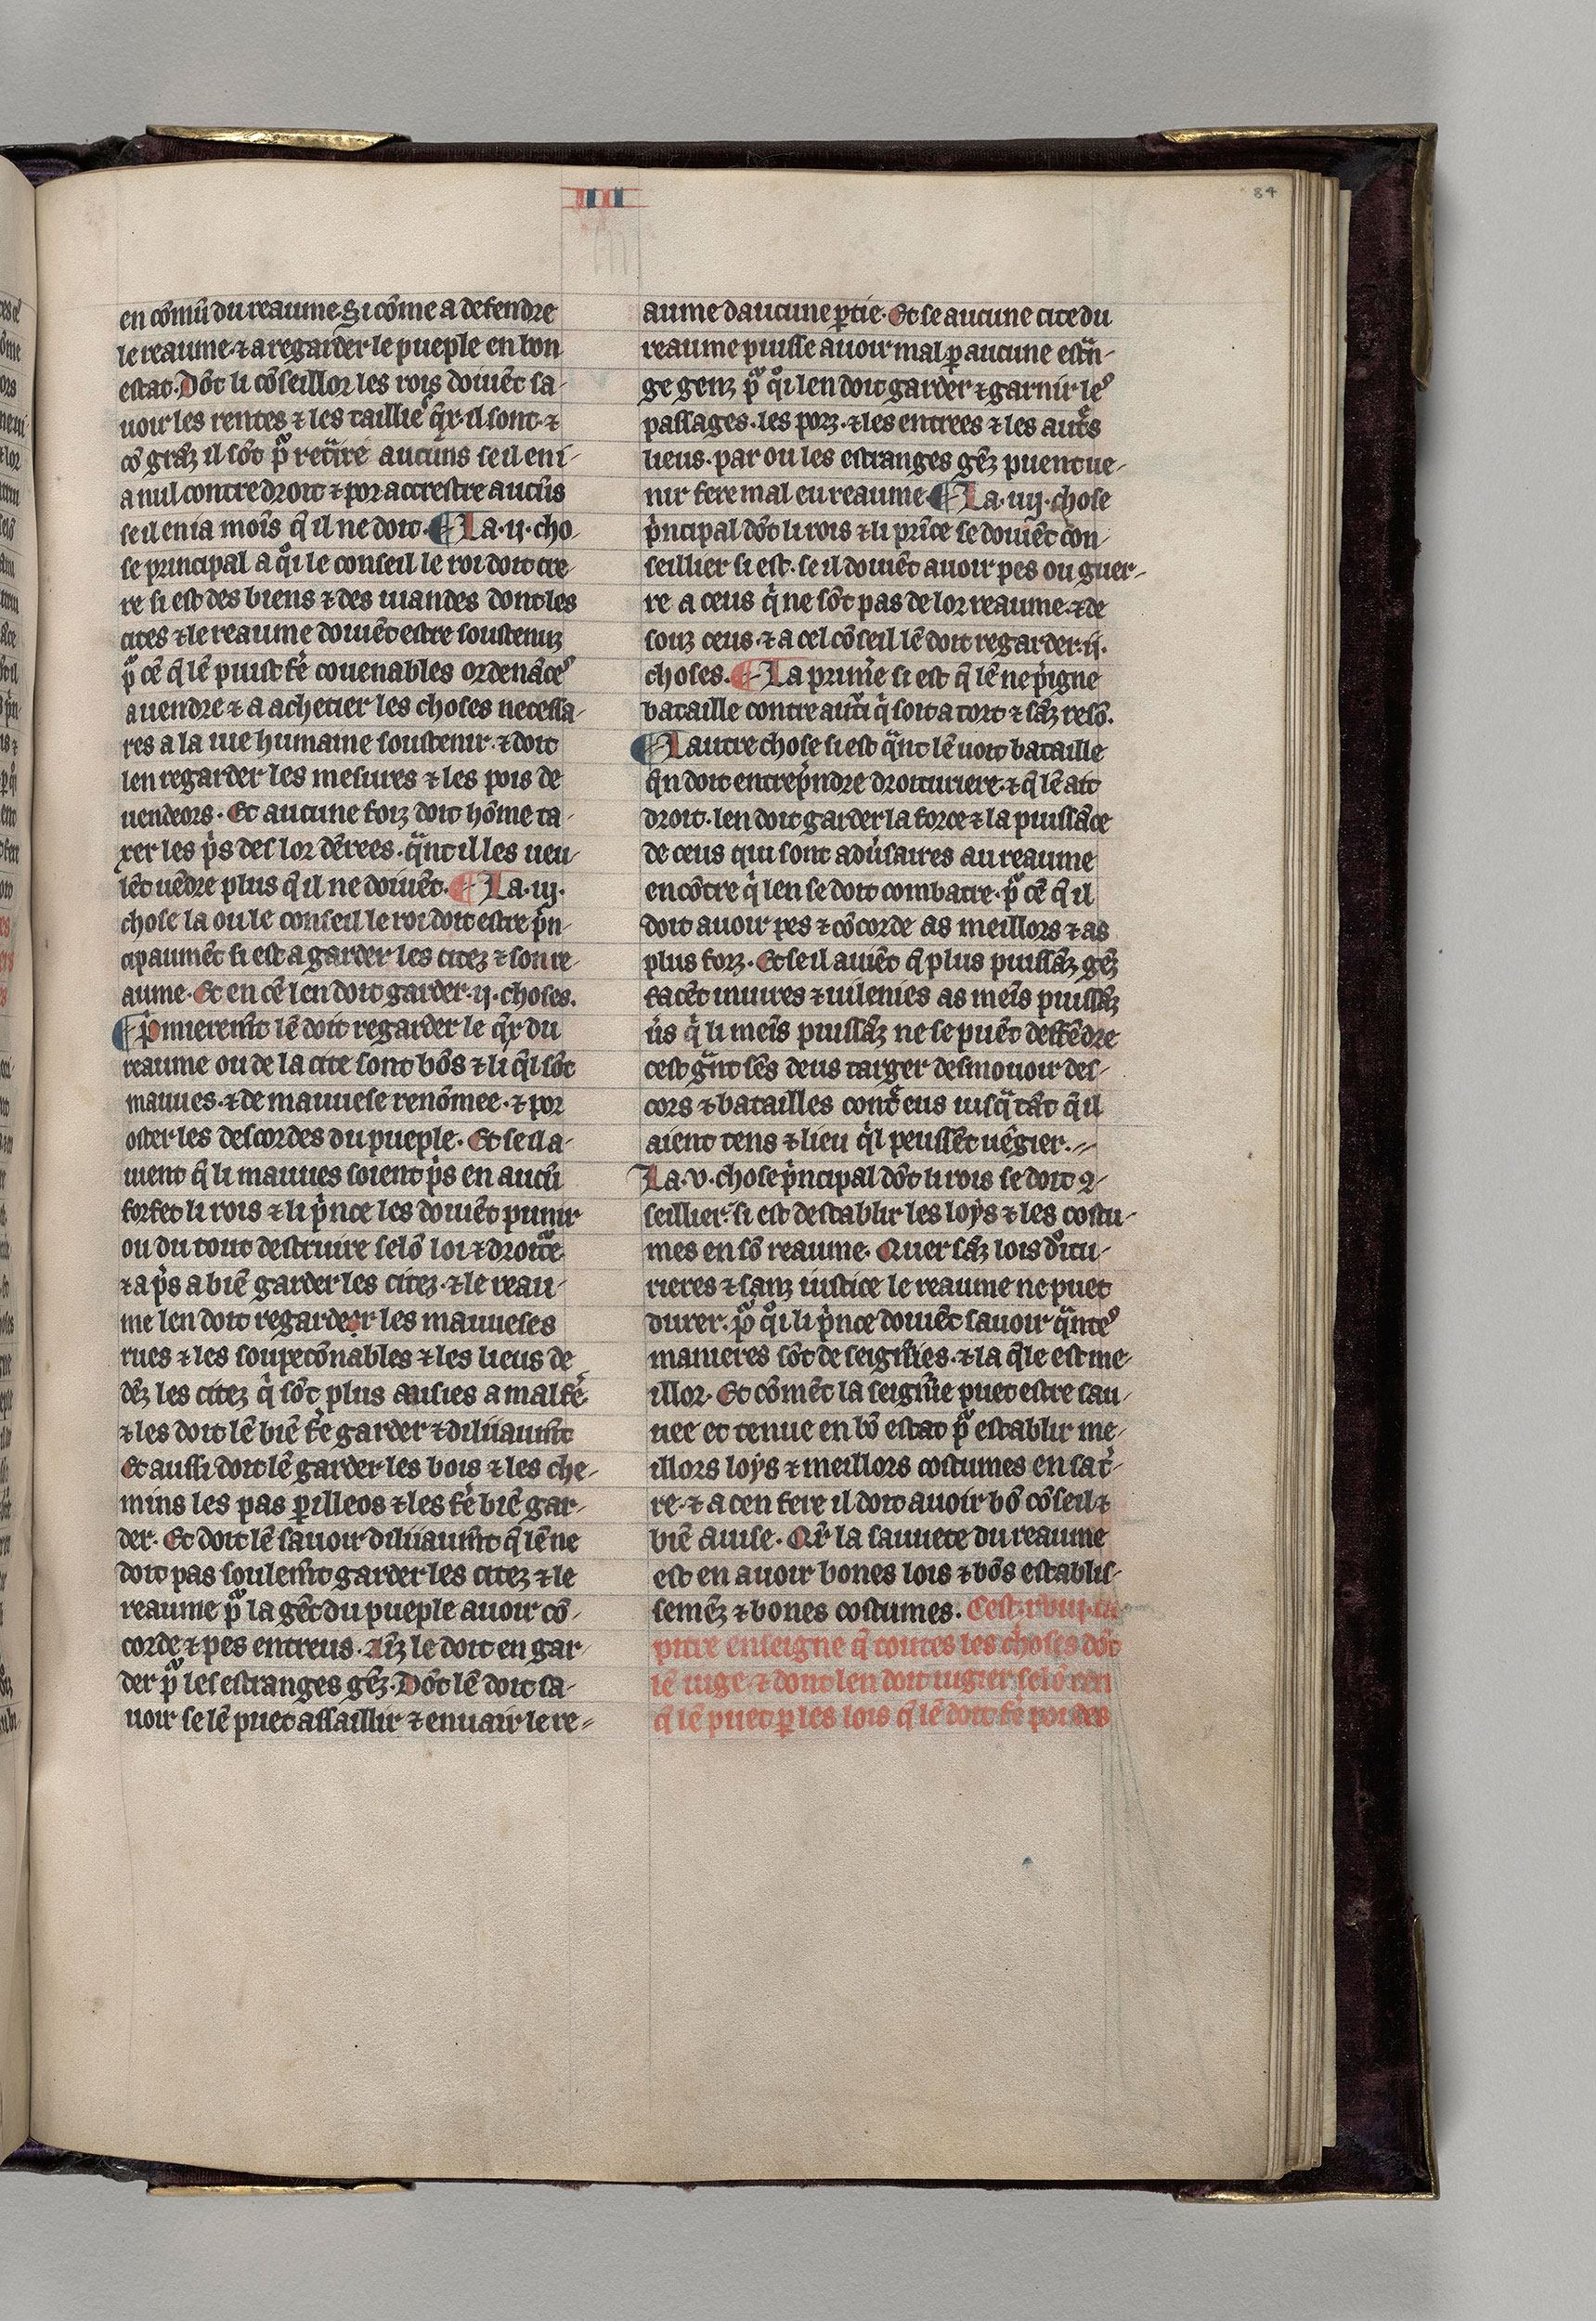 III
84
en cōmū du reaume. Si cōme a defendre
le reaume. ⁊ a regarder le pueple en bon
estat. Dōt li cōseillor les rois doiuēt sa-
uoir les rentes ⁊ les taillieˢ q̄x il sont. ⁊
cō grāz il sōt pͣ retͣire aucuns se il en i
a nul contre droit ⁊ por accrestre aucūs
se il en i a moīs q̄ il ne doit. ¶ La .ij. cho-
se principal a qͦi le conseil le roi doit cre-
re si est des biens ⁊ des uiandes dont les
cites ⁊ le reaume doiuēt estre soustenuz
pͣ cē q̄ lē puist fē couenables ordenāceˢ
a uendre ⁊ a achetier les choses necessa-
res a la uie humaine soustenir. ⁊ doit
len regarder les mesures ⁊ les pois de
uendeors. Et aucune foiz doit hōme ta-
xer les p̍s des lor dērees. qͣnt il les ueu-
lēt uēdre plus q̄ il ne doiuēt. ¶ La .iij.
chose la ou le conseil le roi doit estre p̍n-
cipaumēt si est a garder les citez ⁊ son re-
aume. Et en cē len doit garder .ij. choses.
¶ P̍mieremēt lē doit regarder le q̄x du
reaume ou de la cite sont bōs ⁊ li q̄l sōt
mauues. ⁊ de mauuese renōmee. ⁊ por
oster les descordes du pueple. Et se il a-
uient q̄ li mauues soient p̍s en aucū
forfet li rois ⁊ li p̍nce les doiuēt punir
ou du tout destruire selō loi ⁊ droitͣe
⁊ ap̍s a biē garder les citez. ⁊ le reau-
me len doit regardeer les mauueses
rues ⁊ les soupecōnables ⁊ les lieus de
dēz les citez q̍ sōt plus ausies a mal fē
⁊ les doit lē biē fē garder ⁊ diliiaumēt
Et aussi doit lē garder les bois ⁊ les che-
mins les pas ꝑilleos ⁊ les fē biē gar-
der. Et doit lē sauoir diliiaumēt q̄ lē ne
doit pas soulemēt garder les citez ⁊ le
reaume pͣ la gēt du pueple auoir cō-
corde ⁊ pes entreus. Aīz le doit en gar-
der pͣ les estranges gēz. Dōt lē doit sa-
uoir se lē puet assaillir ⁊ enuair le re-
aume daucune ꝑtie. Et se aucune cite du
reaume puisse auoir mal ꝑ aucune estͣn-
ge genz pͣ qͦi len doit garder ⁊ garnir leˢ
passages. les porz. ⁊ les entrees ⁊ les aut̍s
lieus. par ou les estranges gēz puent ue-
nir fere mal eu reaume ¶ La .iiij. chose
p̍ncipal dōt li rois ⁊ li prīce se doiuēt con-
seillier si est. se il doiuēt auoir pes ou guer-
re a ceus q̍ ne sōt pas de lor reaume. ⁊ de
souz ceus. ⁊ a cel cōseil lē doit regarder .ij.
choses. ¶ La prim̍e si est q̄ lē ne p̍igne
bataille contre autͣi q̍ soit a tort ⁊ sāz resō.
¶ Lautre chose si est qͣnt lē uoit bataille
qͣn doit entrep̍ndre droituriere. ⁊ q̄ lē ait
droit. len doit garder la force ⁊ la puissāce
de ceus qui sont adūsaires au reaume
encōtre q̍ len se doit combatre. pͣ cē q̄ il
doit auoir pes ⁊ cōcorde as meillors ⁊ as
plus forz. Et se il auiēt q̄ plus puissāz gēz
facēt iniures ⁊ uilenies as meīs puissāz
ūs q̍ li meīs puissāz ne se puēt deffēdre
cest gͣnt sēs deus targer desmouoir des-
cors ⁊ batailles contͤ eus iusqͣ tāt q̄ il
aient tens ⁊ lieu q̍l peussēt uēgier.
La .v. chose p̍ncipal dōt li rois se doit ꝯ-
seillier. si est destablir les loẏs ⁊ les costu-
mes en sō reaume. Quer sāz lois dͦitu-
rieres ⁊ sanz iustice le reaume ne puet
durer. pͣ qͦi li p̍nce doiuēt sauoir qͣnteˢ
manieres sōt de seign̄ies. ⁊ la q̄le est me-
illor. Et cōmēt la seign̄ie puet estre sau-
uee et tenue en bō estat pͣ establir me-
illors loẏs ⁊ meillors costumes en sa t̍-
re. ⁊ a cen fere il doit auoir bō cōseil ⁊
biē auise. Qͣr la sauuete du reaume
est en auoir bones lois ⁊ bōs establis-
semēz ⁊ bones costumes. Cest .xviij. ca-
pitre enseigne q̄ toutes les choses dōt
lē iuge ⁊ dont len doit iugier selō cen
q̄ lē puet ꝑ les lois q̄ lē doit fē poi des